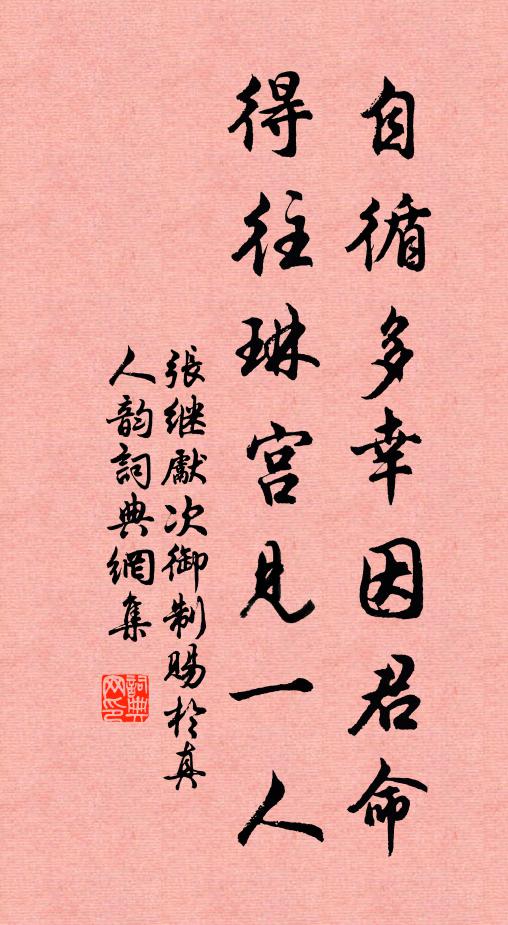 自循多幸因君命
得往琳宫見一人
張継獻次御制賜於真
人韵詞典網集
詞典网印